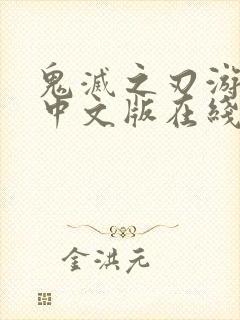 鬼滅之刃游
中文版在綫
金洪元